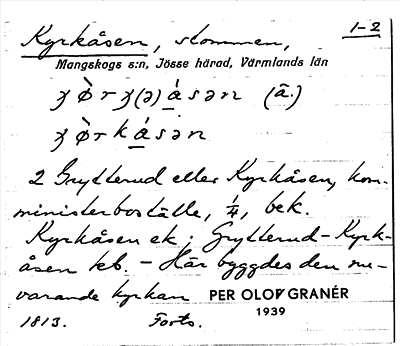 Kyrkåsen, stommen, 1-2
Mangskogs s:n, Jösse härad, Värmlands län
2 Grytterud eller Kyrkåsen, kom-
ministerboställe, 1/4, bek.
Kyrkåsen ek: Grytterud-Kyrk-
åsen kb. - Här byggdes den nu-
varande kyrkan PER OLOF GRANÉR
1939
1813. Forts.